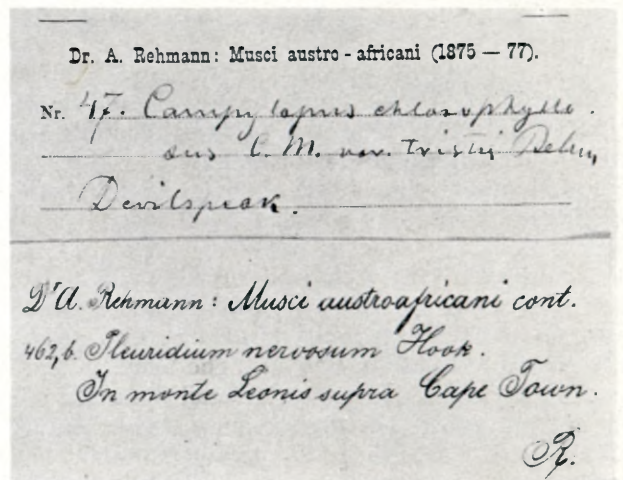 Dr. A. Rehmann: Musci austro-africani (1875 — 77).
Nr. 47. Campylopus chlorophyllo.
sus C. M. var. tristis Rehm,
Devilspeak.
Dr A. Rehmann: Musci austroafricani cont.
462, b. Pleuridium nervosum Hook.
In monte Leonis supra Cape Town.
R.